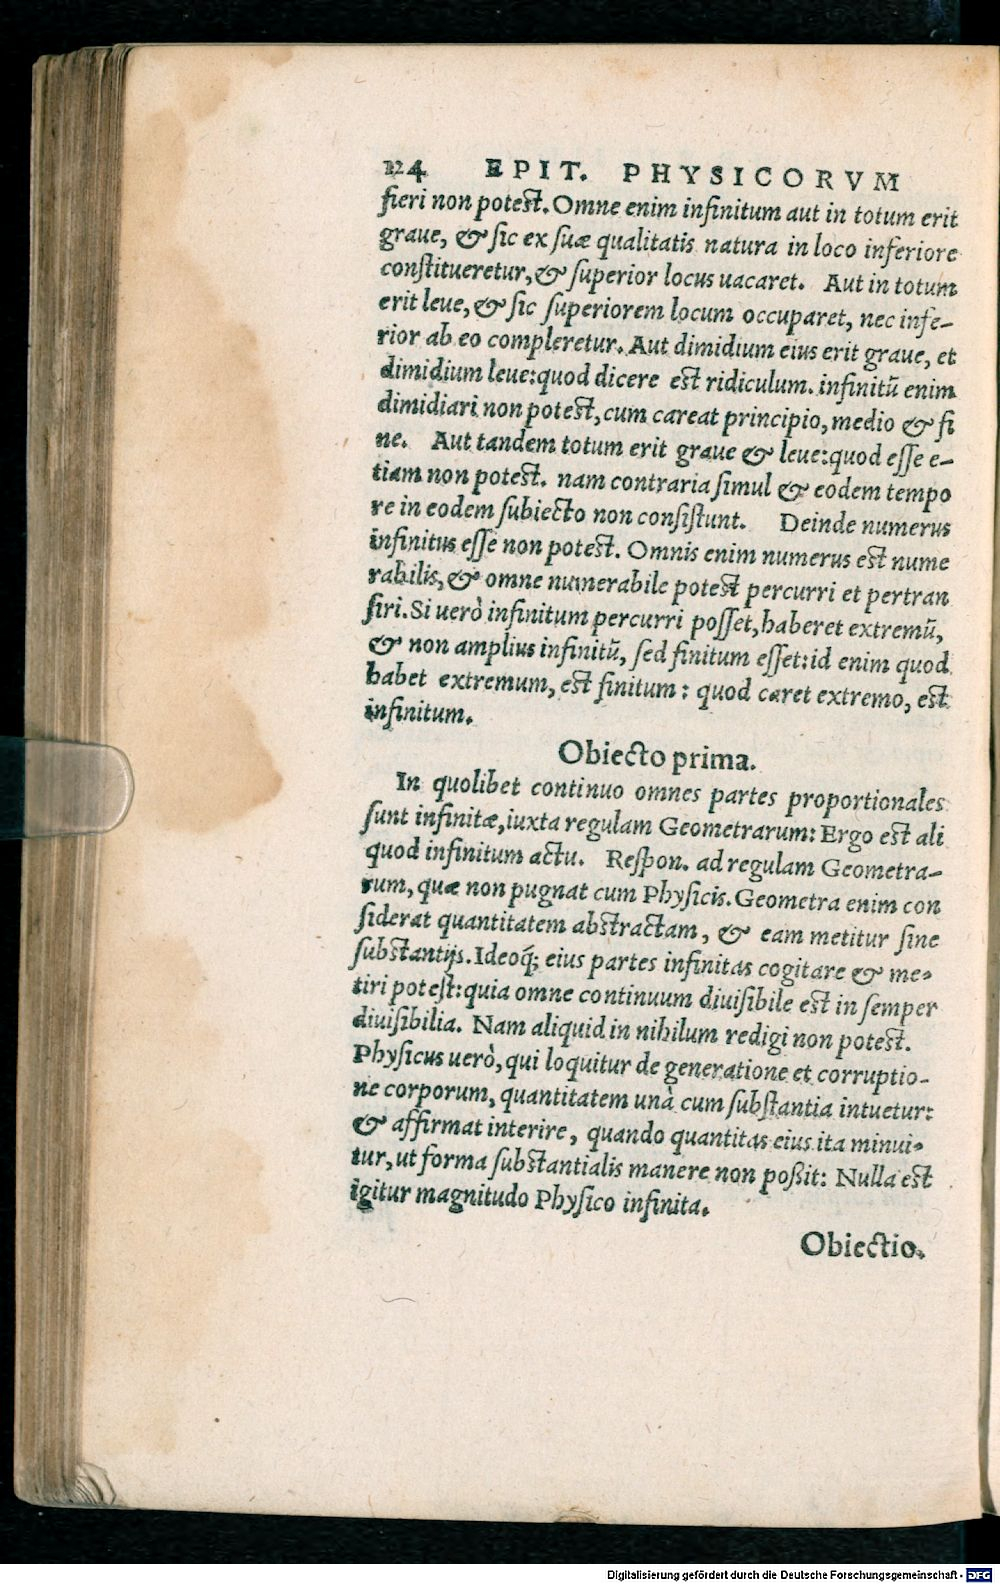 124 EPIT. PHYSICORVM
fieri non potest. Omne enim infinitum aut in totum erit
graue, & sic ex suæ qualitatis natura in loco inferiore
constitueretur, & superior locus uacaret. Aut in totum
erit leue, & sic superiorem locum occuparet, nec infe-
rior ab eo compleretur. Aut dimidium eius erit graue, et
dimidium leue: quod dicere est ridiculum. infinitū enim
dimidiari non potest, cum careat principio, medio & fi
ne. Aut tandem totum erit graue & leue: quod esse e-
tiam non potest. nam contraria simul & eodem tempo
re in eodem subiecto non consistunt. Deinde numerus
infinitus esse non potest. Omnis enim numerus est nume
rabilis, & omne numerabile potest percurri et pertran
siri. Si uerò infinitum percurri posset, haberet extremū,
& non amplius infinitū, sed finitum esset: id enim quod
habet extremum, est finitum: quod caret extremo, est
infinitum.
Obiecto prima.
In quolibet continuo omnes partes proportionales
sunt infinitæ, iuxta regulam Geometrarum: Ergo est ali
quod infinitum actu. Respon. ad regulam Geometra-
rum, quæ non pugnat cum Physicis. Geometra enim con
siderat quantitatem abstractam, & eam metitur sine
substantijs. Ideoq́; eius partes infinitas cogitare & me-
tiri potest: quia omne continuum diuisibile est in semper
diuisibilia. Nam aliquid in nihilum redigi non potest.
Physicus uerò, qui loquitur de generatione et corruptio-
ne corporum, quantitatem unà cum substantia intuetur:
& affirmat interire, quando quantitas eius ita minui-
tur, ut forma substantialis manere non poßit: Nulla est
igitur magnitudo Physico infinita.
Obiectio.
Digitalisierung gefördert durch die Deutsche Forschungsgemeinschaft - DFG